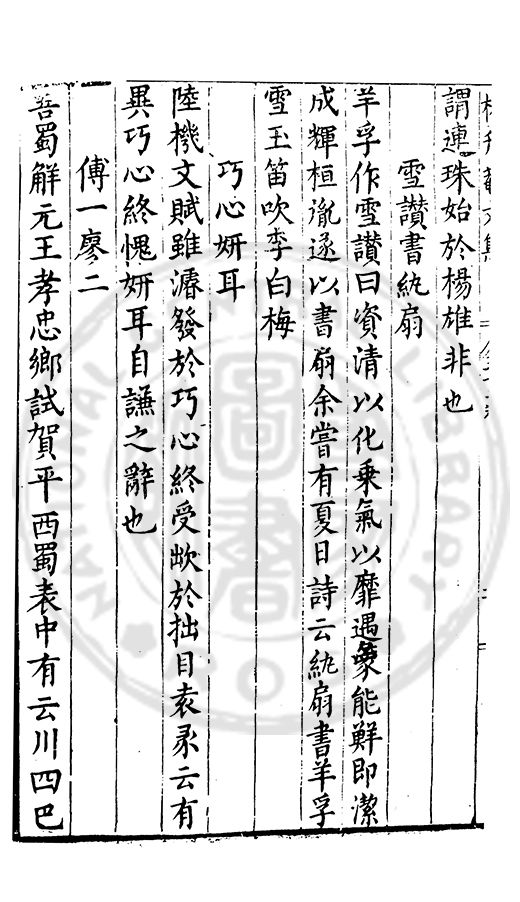 謂連珠始於楊雄非也
雪讃書紈扇
羊孚作雪讃曰資清以化乗氣以靡遇象能鮮即潔
成輝桓胤遂以書扇余嘗有夏日詩云紈扇書羊孚
雪玉笛吹李白梅
巧心妍耳
陸機文賦雖濬發於巧心終受欰於拙目袁彖云有
異巧心終愧妍耳自謙之辭也
傅一廖二
吾蜀解元王孝忠鄉試賀平西蜀表中有云川四巴